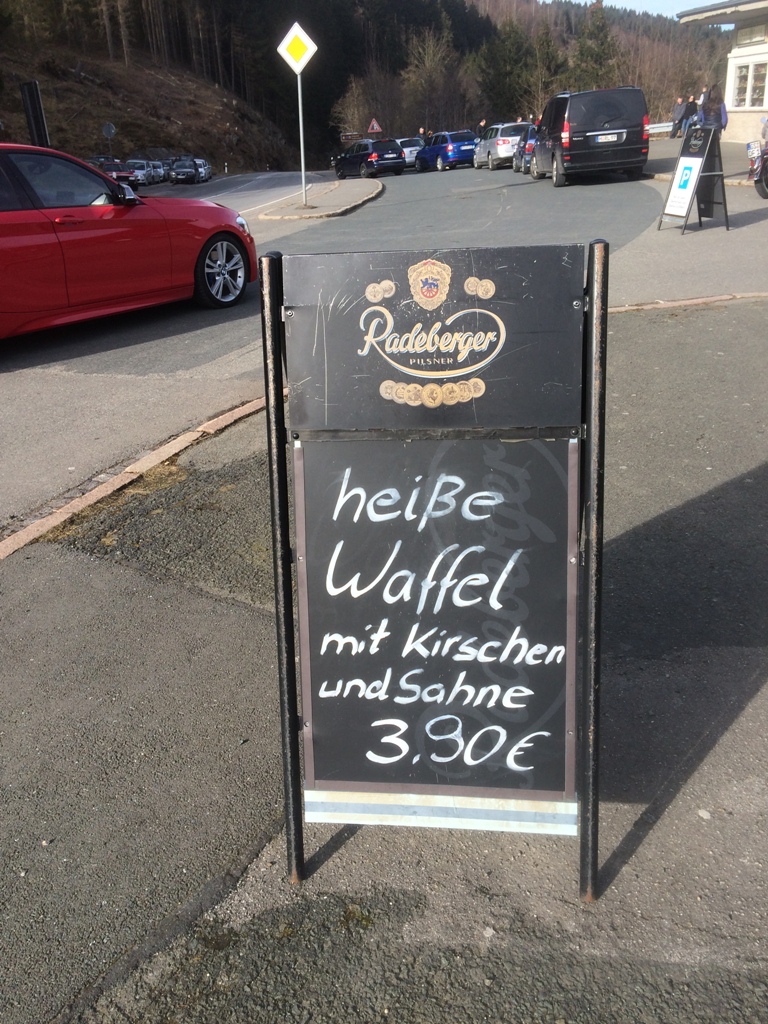 Radeberger
PILSNER
heiße
Waffel
mit Kirschen
und Sahne
3.90€
P